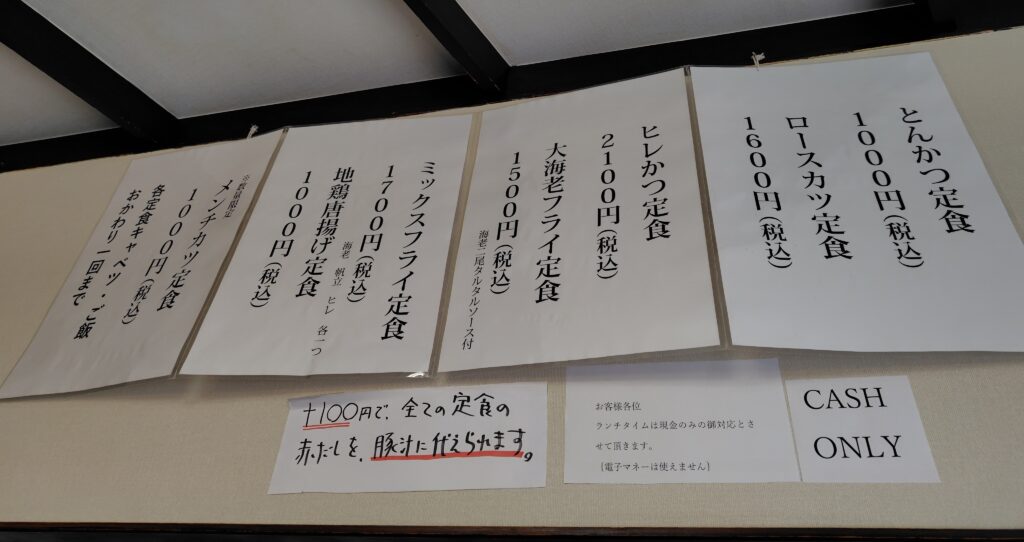 とんかつ定食
1000円(税込)
ロースカツ定食
1600円(税込)
ヒレかつ定食
2100円(税込)
大海老フライ定食
1500円(税込)
海老二尾タルタルソース付
ミックスフライ定食
1700円(税込)
海老 帆立 ヒレ 各一つ
地鶏唐揚げ定食
1000円(税込)
※数量限定
メンチカツ定食
1000円(税込)
各定食キャベツ・ご飯
おかわり一回まで
+100円で、全ての定食の
赤だしを、豚汁に代えられます。
お客様各位
ランチタイムは現金のみの御対応とさ
せて頂きます。
(電子マネーは使えません)
CASH
ONLY